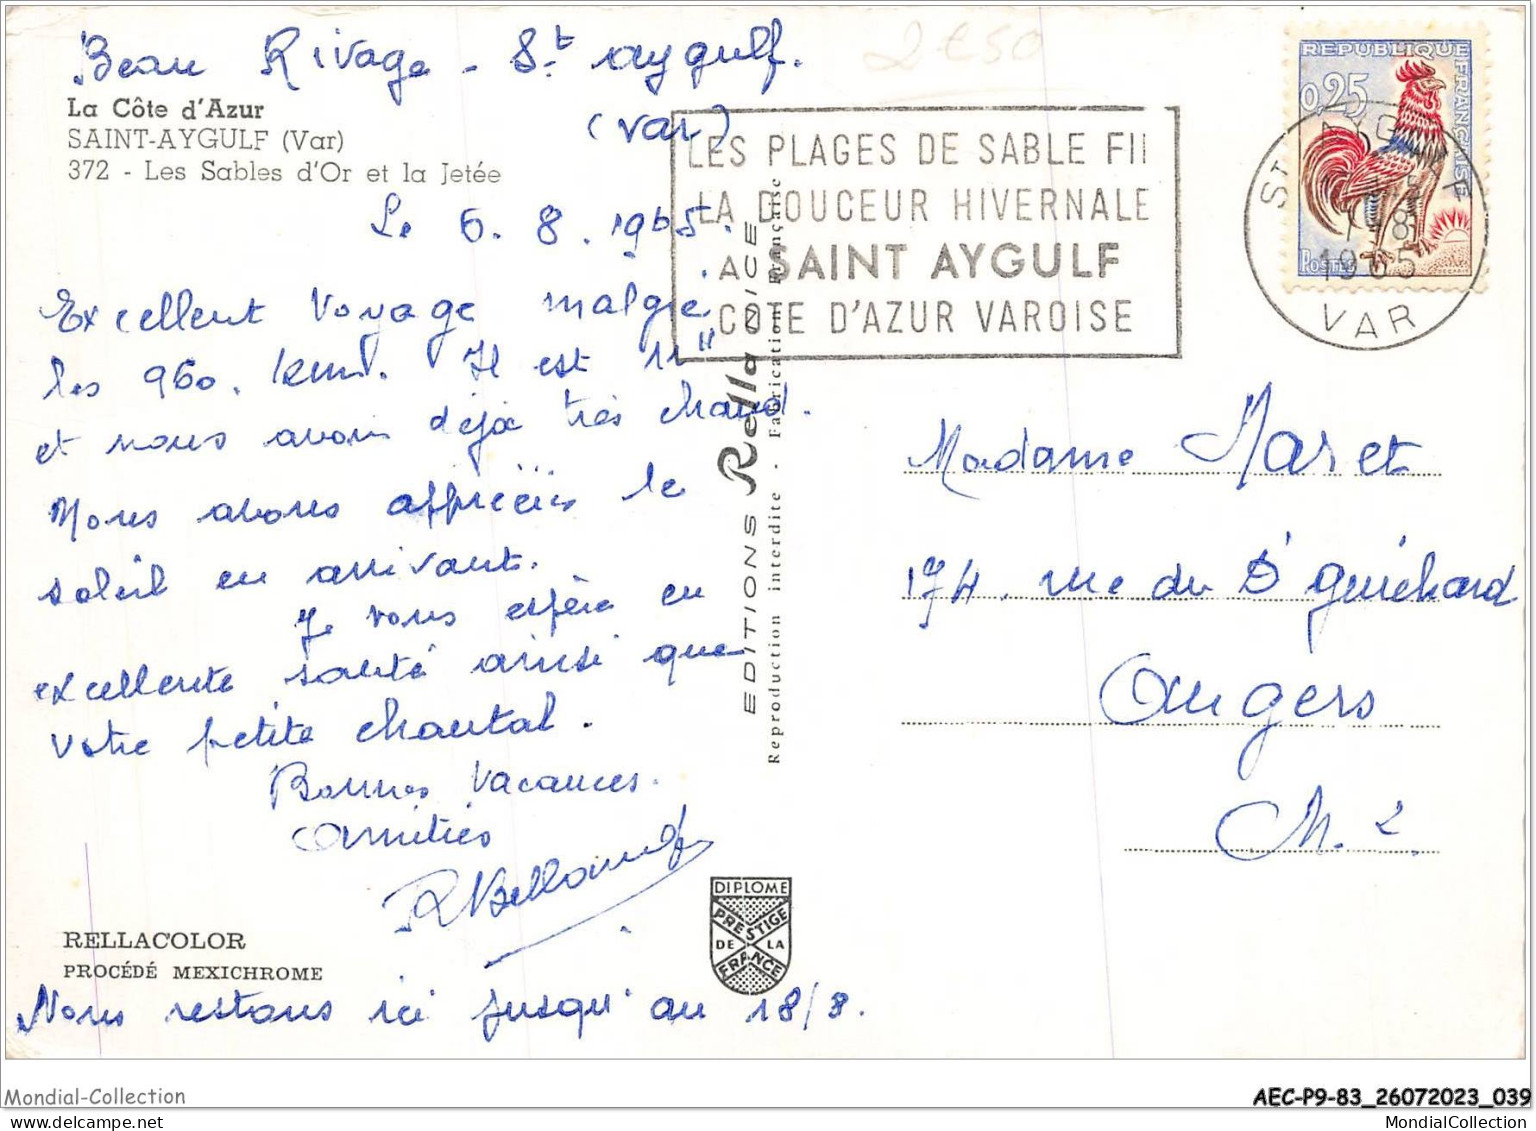 Beau Rivage - St aygulf.
(var)
2€50
La Côte d'Azur
SAINT-AYGULF (Var)
372 - Les Sables d'Or et la Jetée
Le 6. 8. 1965.
Excellent voyage malgré
les 960. km. Il est 11"
et nous avons déjà très chaud.
Nous avons appréciés le
soleil en arrivant.
Je vous espère en
excellente santé ainsi que
votre petite chantal.
Bonnes Vacances.
Amitiés
RELLACOLOR
PROCÉDÉ MEXICHROME
Nous restons ici jusqu'au 18/8.
EDITIONS Rella NICE
Reproduction interdite - Fabrication Française
DIPLOME
PRESTIGE
DE LA
FRANCE
LES PLAGES DE SABLE FI
LA DOUCEUR HIVERNALE
A SAINT AYGULF
COTE D'AZUR VAROISE
REPUBLIQUE FRANÇAISE
0,25
Postes
ST AYGULF
1965
VAR
Madame Maret
174. rue du Dr guichard
Angers
M. L.
Mondial-Collection
AEC-P9-83_26072023_039
MondialCollection